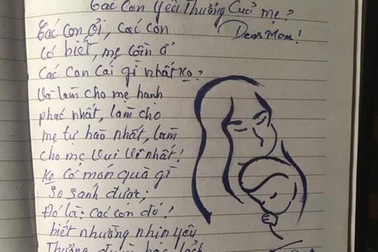 Các con yêu thương của mẹ?
Các con ơi, các con
Dear Mom!
Có biết, mẹ cần ở
Các con cái gì nhất ko?
Và làm cho mẹ hạnh
phúc nhất, làm cho
mẹ tự hào nhất, làm
cho mẹ vui vẻ nhất!
Ko có món quà gì
So sánh được:
Đó là: các con đó!
biết nhường nhịn yêu
Thương